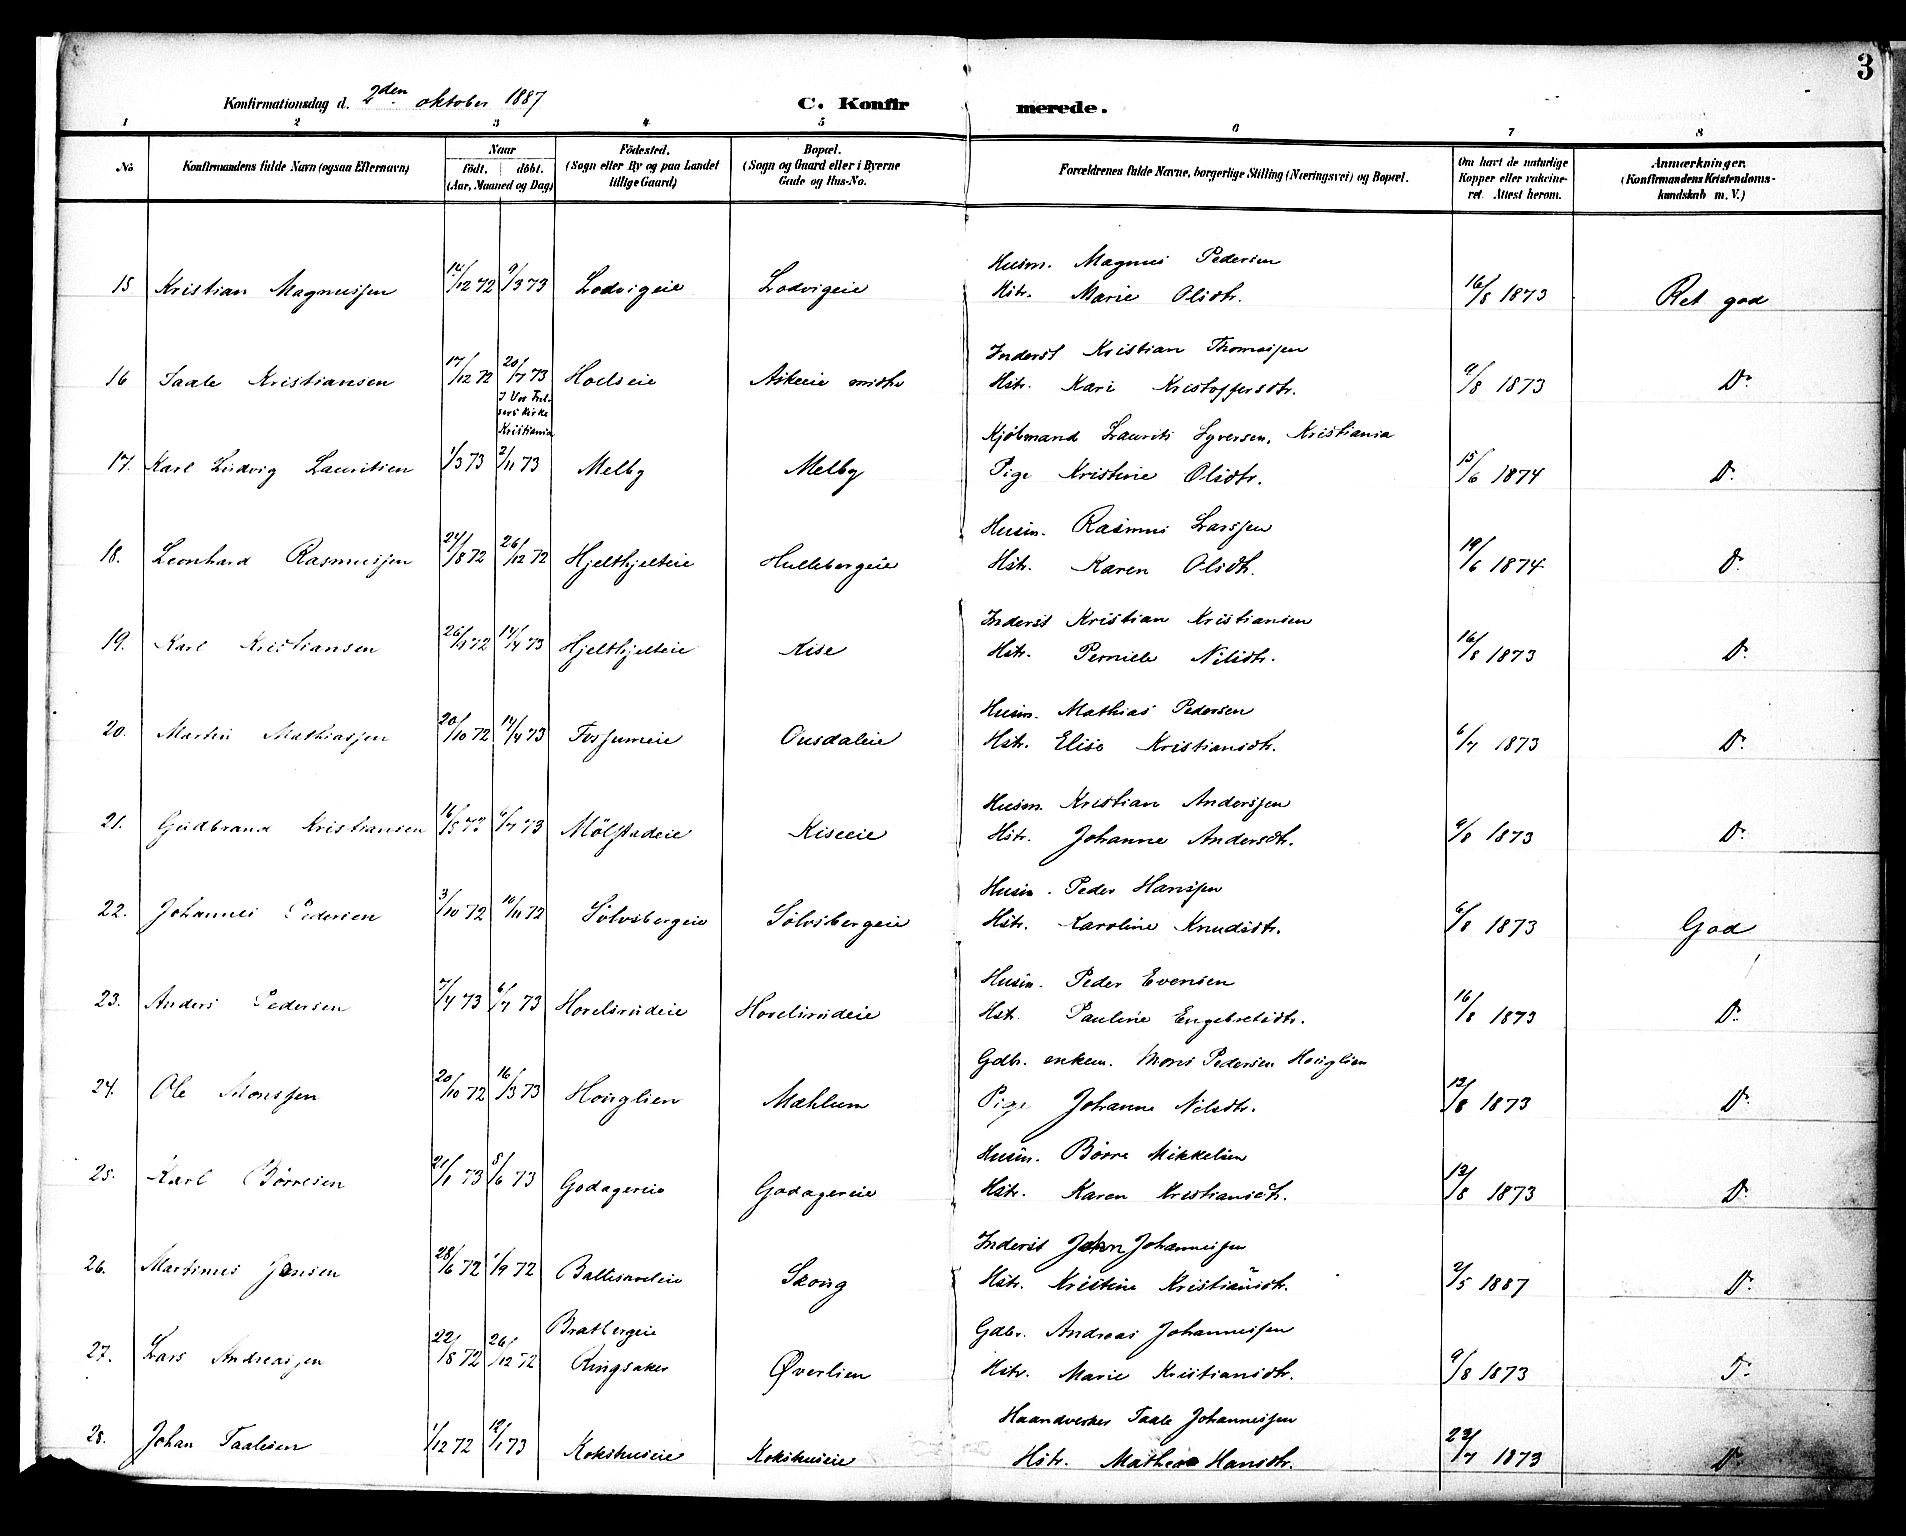 3
Konfirmationsdag d. 2den oktober 1887 C. Konfir merede.
1 2 3 4 5 6 7 8
No Konfirmandens fulde Navn (ogsaa Efternavn) Naar födt. döbt. (Aar, Maaned og Dag) Födested. (Sogn eller By og paa Landet tillige Gaard) Bopæl. (Sogn og Gaard eller i Byerne Gade og Hus-No. Forældrenes fulde Navne, borgerlige Stilling (Næringsvei) og Bopæl. Om havt de naturlige Kopper eller vakcineret. Attest herom. Anmærkninger. (Konfirmandens Kristendomskundskab m. V.)
Husm. Magnus Pedersen
15 Kristian Magnussen 14/12 72 9/3 73 Lodvigeie Lodvigeie Hstr. Marie Olsdtr. 16/8 1873 Ret god
Inderst Kristian Thomassen
16 Taale Kristiansen 17/12 72 20/7 73 Hoelseie Askeie Hstr. Kari Kristoffersdtr. 9/8 1873 Do
I Vor Frelsers Kirke Kristiania
Kjöbmand Laurits Syversen, Kristiania
17. Karl Ludvig Lauritsen 1/3 73 2/11 73 Melby Melby Pige Kristine Olsdtr. 15/6 1874 Do
Husm. Rasmus Larssen
18. Leonhard Rasmussen 24/8 72 26/12 72 Hjelthjelteie Hullebergeie Hstr. Karen Olsdtr. 19/6 1874 Do
Inderst Kristian Kristiansen
19. Karl Kristiansen 26/9 72 14/4 73 Hjelthjelteie Kise Hstr. Pernille Nilsdtr. 16/8 1873 Do
Husm. Mathias Pedersen
20. Martin Mathiassen 20/10 72 14/4 73 Fossumeie Ousdaleie Hstr. Elise Kristiansdtr. 6/7 1873 Do
Husm. Kristian Anderssen
21. Gudbrand Kristiansen 16/5 73 6/7 73 Mölstadeie Kiseeie Hstr. Johanne Andersdtr. 9/8 1873 Do
Husm. Peder Hanssen
22. Johannes Pedersen 3/10 72 10/11 72 Sölvsbergeie Sölvsbergeie Hstr. Karoline Knudsdtr. 6/8 1873 God
Husm. Peder Evensen
23. Anders Pedersen 7/4 73 6/7 73 Hovelsrudeie Hovelsrudeie Hstr. Pauline Engebretsdtr. 16/8 1873 Do
Gdbr. enkem. Mons Pedersen Houglien
24. Ole Monssen 20/10 72 16/3 73 Houglien Mæhlum Pige Johanne Nilsdtr. 13/8 1873 Do
Husm. Börre Mikkelsen
25. Karl Börresen 21/1 73 8/6 73 Godagereie Godagereie Hstr. Karen Kristiansdtr. 13/8 1873 Do
Inderst Johan Johannessen
26. Martinus Jensen 28/6 72 1/9 72 Skoug Hstr. Kristine Kristiansdtr. 2/5 1887 Do
Bratbergeie Gdbr. Andreas Johannessen
27. Lars Andreassen 22/8 72 26/12 72 Ringsaker Øverlien Hstr. Marie Kristiansdtr. 9/8 1873
Haandverker Taale Johannessen
28. Johan Taalesen 1/12 72 12/1 73 Kokshuseie Kokshuseie Hstr. Mathea Hansdtr. 23/7 1873 Do